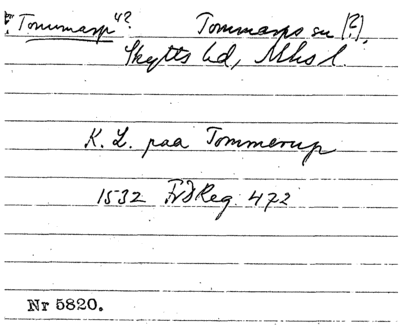 "Tommarp"? Tommarps sn (?),
Skytts hd, Mhs l.
K. L. paa Tommerup
1532 FrdReg. 472
Nr 5820.